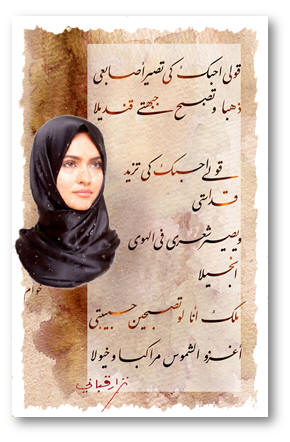 قولي احبك كي تصير أصابعي
ذهبا وتصبح جبهتي قنديلا
قولي احبك كي تزيد
قداستي
ويصير شعري في الهوى
انجيلا
ملك أنا لو تصبحين حبيبتي
أغزو الشموس مراكبا وخيولا
نزار قباني